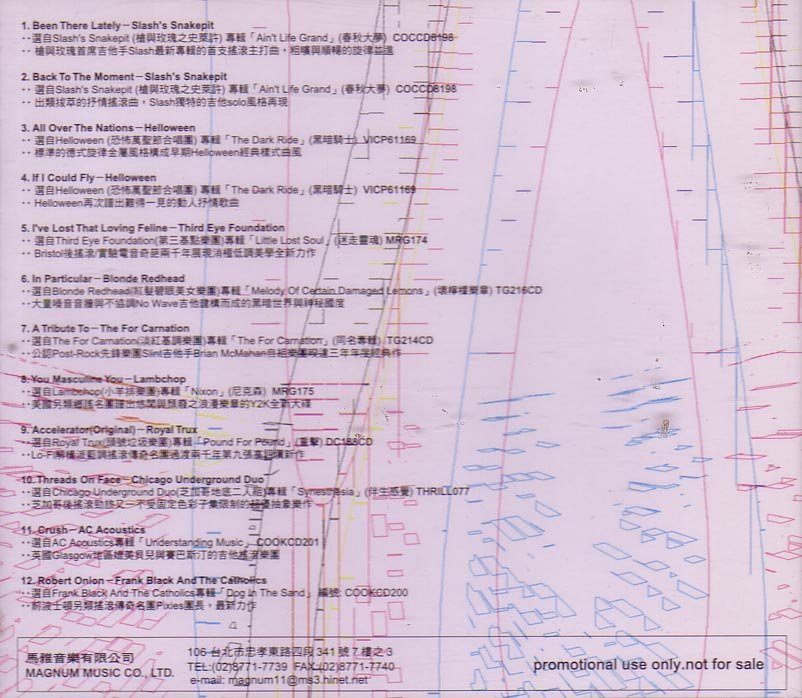 1. Been There Lately－Slash's Snakepit
‥選自Slash's Snakepit (槍與玫瑰之史萊許) 專輯「Ain't Life Grand」(春秋大夢) COCCD8198
‥槍與玫瑰首席吉他手Slash最新專輯的首支搖滾主打曲，粗曠與順暢的旋律並進
2. Back To The Moment－Slash's Snakepit
‥選自Slash's Snakepit (槍與玫瑰之史萊許) 專輯「Ain't Life Grand」(春秋大夢) COCCD8198
‥出類拔萃的抒情搖滾曲，Slash獨特的吉他solo風格再現
3. All Over The Nations－Helloween
‥選自Helloween (恐怖萬聖節合唱團) 專輯「The Dark Ride」(黑暗騎士) VICP61169
‥標準的德式旋律金屬風格構成早期Helloween經典樣式曲風
4. If I Could Fly－Helloween
‥選自Helloween (恐怖萬聖節合唱團) 專輯「The Dark Ride」(黑暗騎士) VICP61169
‥Helloween再次譜出難得一見的動人抒情歌曲
5. I've Lost That Loving Feline－Third Eye Foundation
‥選自Third Eye Foundation(第三基點樂團)專輯「Little Lost Soul」(迷走靈魂) MRG174
‥Bristol後搖滾/實驗電音奇葩兩千年展現消極低調美學全新力作
6. In Particular－Blonde Redhead
‥選自Blonde Redhead(紅髮碧眼美女樂團)專輯「Melody Of Certain Damaged Lemons」(壞檸檬樂章) TG216CD
‥大量噪音音牆與不協調No Wave吉他建構而成的黑暗世界與神秘國度
7. A Tribute To－The For Carnation
‥選自The For Carnation(淡紅基調樂團)專輯「The For Carnation」(同名專輯) TG214CD
‥公認Post-Rock先鋒樂團Slint吉他手Brian McMahan自組樂團睽違三年年度經典作
8. You Masculine You－Lambchop
‥選自Lambchop(小羊排樂團)專輯「Nixon」(尼克森) MRG175
‥美國另類鄉謠名團譜出悠閒與頹廢之浪漫樂章的Y2K全新大碟
9. Accelerator(Original)－Royal Trux
‥選自Royal Trux(頭號垃圾樂團)專輯「Pound For Pound」(重擊) DC188CD
‥Lo-Fi解構派藍調搖滾傳奇名團過渡兩千年第九張專輯嶄新作
10. Threads On Face－Chicago Underground Duo
‥選自Chicago Underground Duo(芝加哥地底二人組)專輯「Synesthesia」(伴生感覺) THRILL077
‥芝加哥後搖滾勁旅又一不受固定色彩子集限制的超優抽象樂作
11. Crush－AC Acoustics
‥選自AC Acoustics專輯「Understanding Music」COOKCD201
‥英國Glasgow地區媲美貝兒與賽巴斯汀的吉他搖滾樂團
12. Robert Onion－Frank Black And The Catholics
‥選自Frank Black And The Catholics專輯「Dog In The Sand」 編號: COOKCD200
‥前波士頓另類搖滾傳奇名團Pixies團長，最新力作
馬雅音樂有限公司
MAGNUM MUSIC CO., LTD.
106 台北市忠孝東路四段 341 號 7 樓之 3
TEL:(02)8771-7739 FAX:(02)8771-7740
e-mail: magnum11@ms3.hinet.net
promotional use only.not for sale